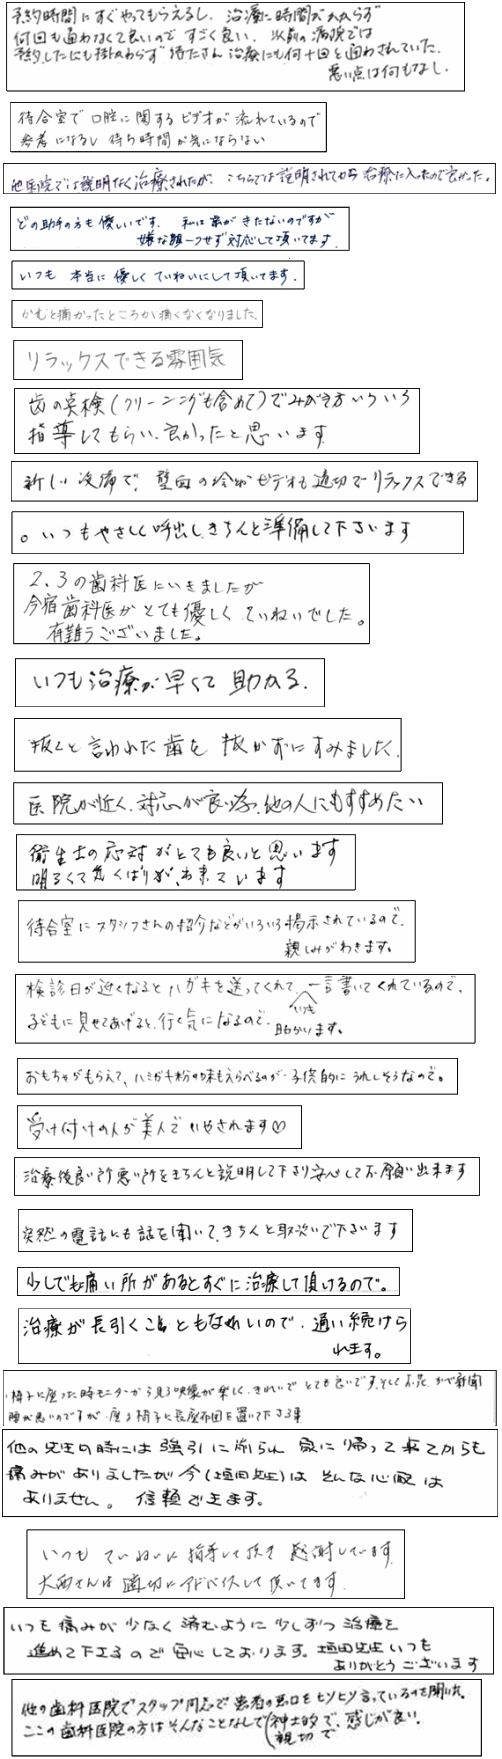 予約時間にすぐやってもらえるし、治療に時間がかからず
何回も通わなくて良いので すごく良い。以前の病院では
予約したにも拘わらず 待たされ 治療にも何十回と通わされていた。
悪い点は何もなし。
待合室で口腔に関するビデオが流れているので
参考になるし 待ち時間が気にならない
他医院では説明なく治療されたが、こちらでは説明されてから治療に入ったので良かった。
どの助手の方も優しいです。私は歯がきたないのですが
嫌な顔一つせず対応して頂いてます。
いつも 本当に優しく ていねいにして頂いてます。
かむと痛かったところが痛くなくなりました。
リラックスできる雰囲気
歯の点検(クリーニングも含めて)でみがき方いろいろ
指導してもらい、良かったと思います
新しい設備で、壁面の絵がビデオも適切でリラックスできる
。いつもやさしく呼出し、きちんと準備して下さいます
2、3の歯科医にいきましたが
今宿歯科医がとても優しく ていねいでした。
有難うございました。
いつも治療が早くて助かる。
抜くと言われた歯を 抜かずにすみました。
医院が近く、対応が良い為、他の人にもすすめたい
衛生士の応対がとても良いと思います
明るくて気くばりが、出来ています
待合室にスタッフさんの紹介などがいろいろ掲示されているので、
親しみがわきます。
検診日が近くなるとハガキを送ってくれて、一言書いてくれているので、
子どもに見せてあげると、行く気になるので、いつも助かります。
おもちゃがもらえて、ハミガキ粉の味もえらべるのが、子供的にうれしそうなので。
受け付けの人が美人でいやされます♡
治療後良い所悪い所をきちんと説明して下さり安心してお願い出来ます
突然の電話にも話を聞いて、きちんと取次いで下さいます
少しでも痛い所があるとすぐに治療して頂けるので。
治療が長引くこともなれいので、通い続けら
れます。
椅子に座った時モニターから見る映像が楽しく、きれいで とても良いです。そして お花
腰が悪いのですが、座る椅子に長座布団を置いて下さる事
他の先生の時には強引に削られ 家に帰って来てからも
痛みがありましたが今(垣田先生)は そんな心配は
ありません。信頼できます。
いつも ていねいに指導して頂き 感謝しています。
大西さんは適切にアドバイスして頂いてます。
いつも痛みが少なく済むように少しずつ治療を
進めて下さるので安心しております。垣田先生いつも
ありがとうございます
他の歯科医院でスタッフ同志で患者の悪口をヒソヒソ言っているのを聞いた。
ここの歯科医院の方はそんなことなしで(紳士的で、感じが良い。
親切で